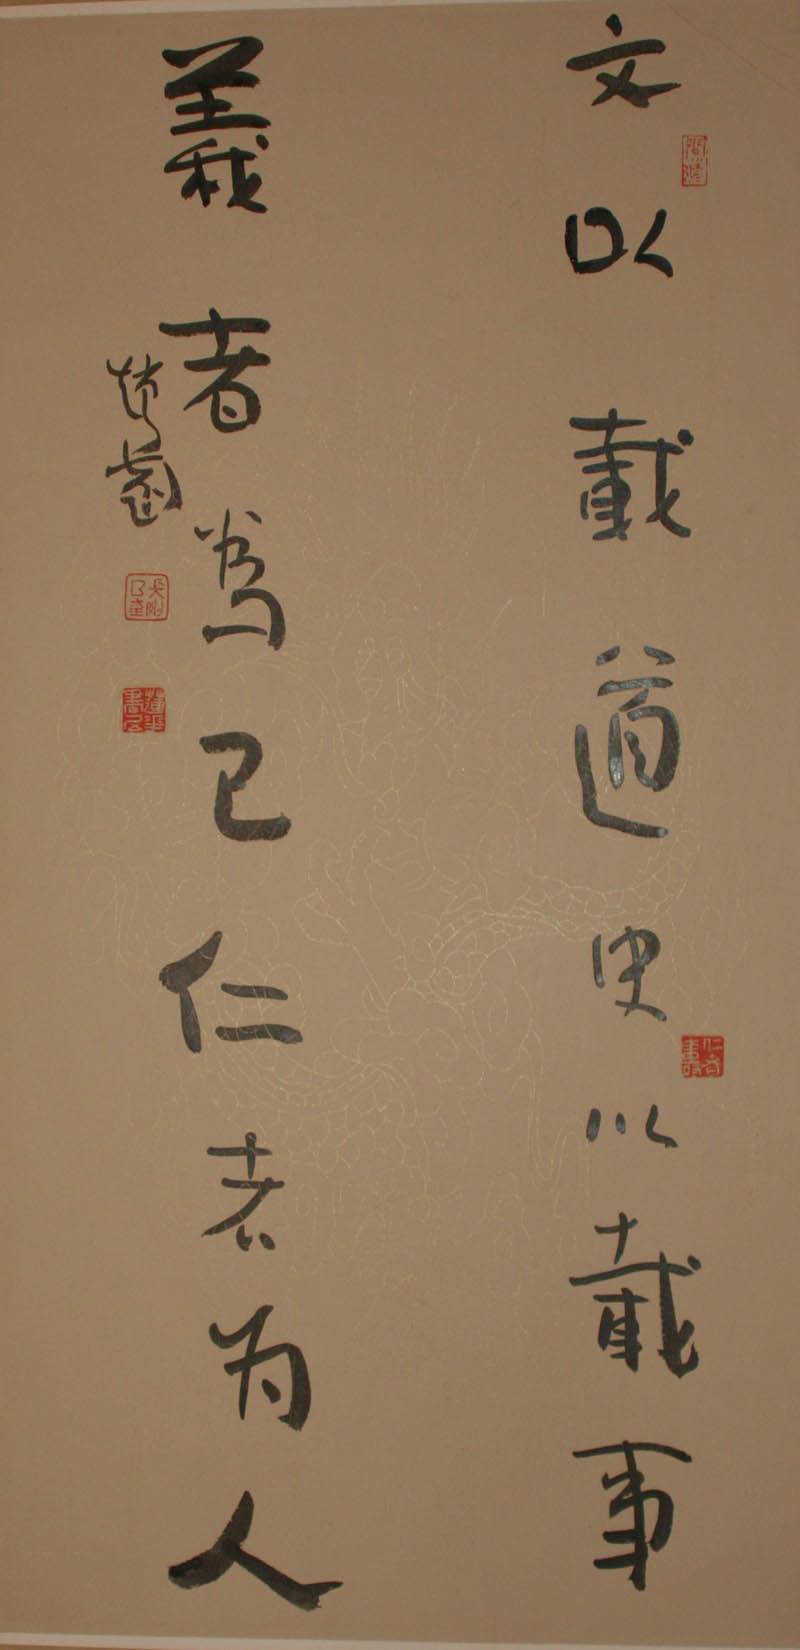 文以載道史以載事
義者為己仁者为人